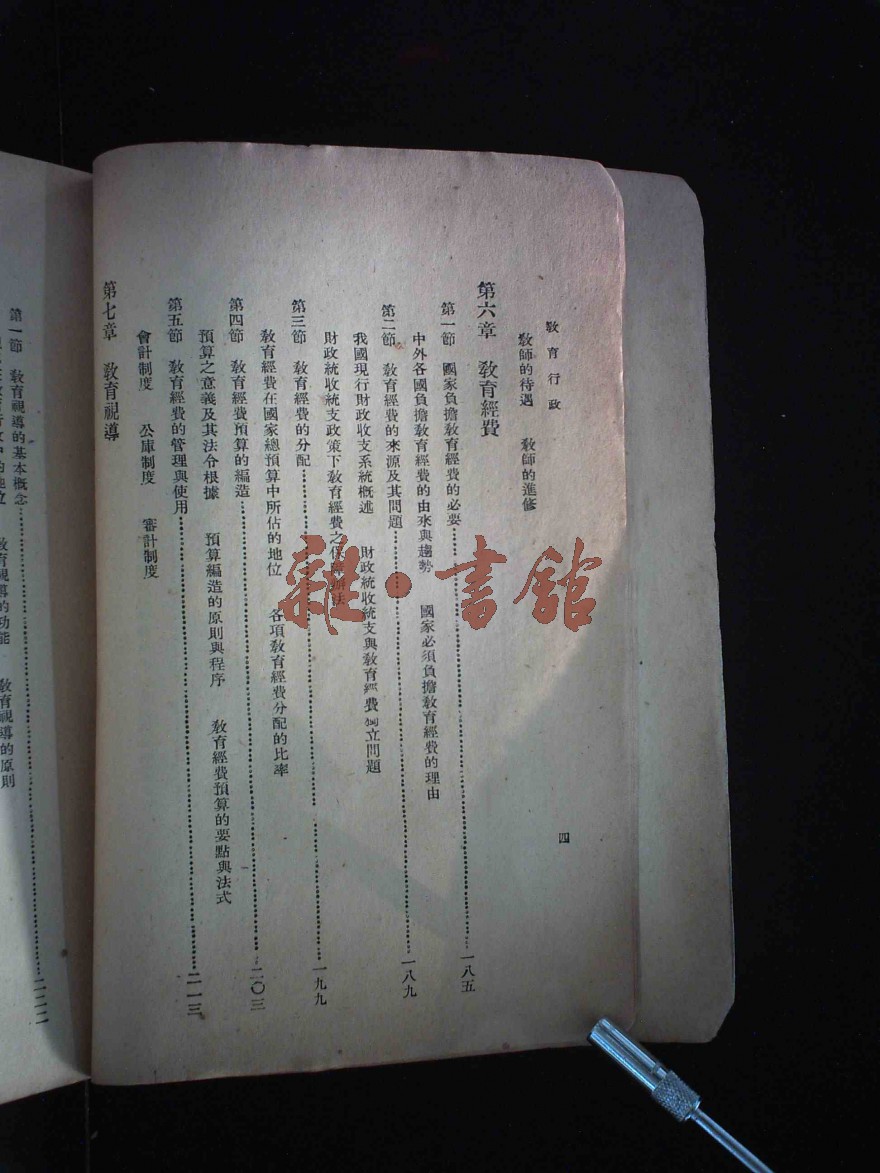 教育行政
四
教師的待遇 教師的進修
第六章 教育經費
第一節 國家負擔教育經費的必要……一八五
中外各國負擔教育經費的由來與趨勢 國家必須負擔教育經費的理由
第二節 教育經費的來源及其問題……一八九
我國現行財政收支系統概述 財政統收統支與教育經費獨立問題
財政統收統支政策下教育經費之保障辦法
第三節 教育經費的分配……一九九
教育經費在國家總預算中所佔的地位 各項教育經費分配的比率
第四節 教育經費預算的編造……二〇三
預算之意義及其法令根據 預算編造的原則與程序 教育經費預算的要點與法式
第五節 教育經費的管理與使用……二一三
會計制度 公庫制度 審計制度
第七章 教育視導
第一節 教育視導的基本概念……二二二
教育視導的功能 教育視導的原則
雜·書館